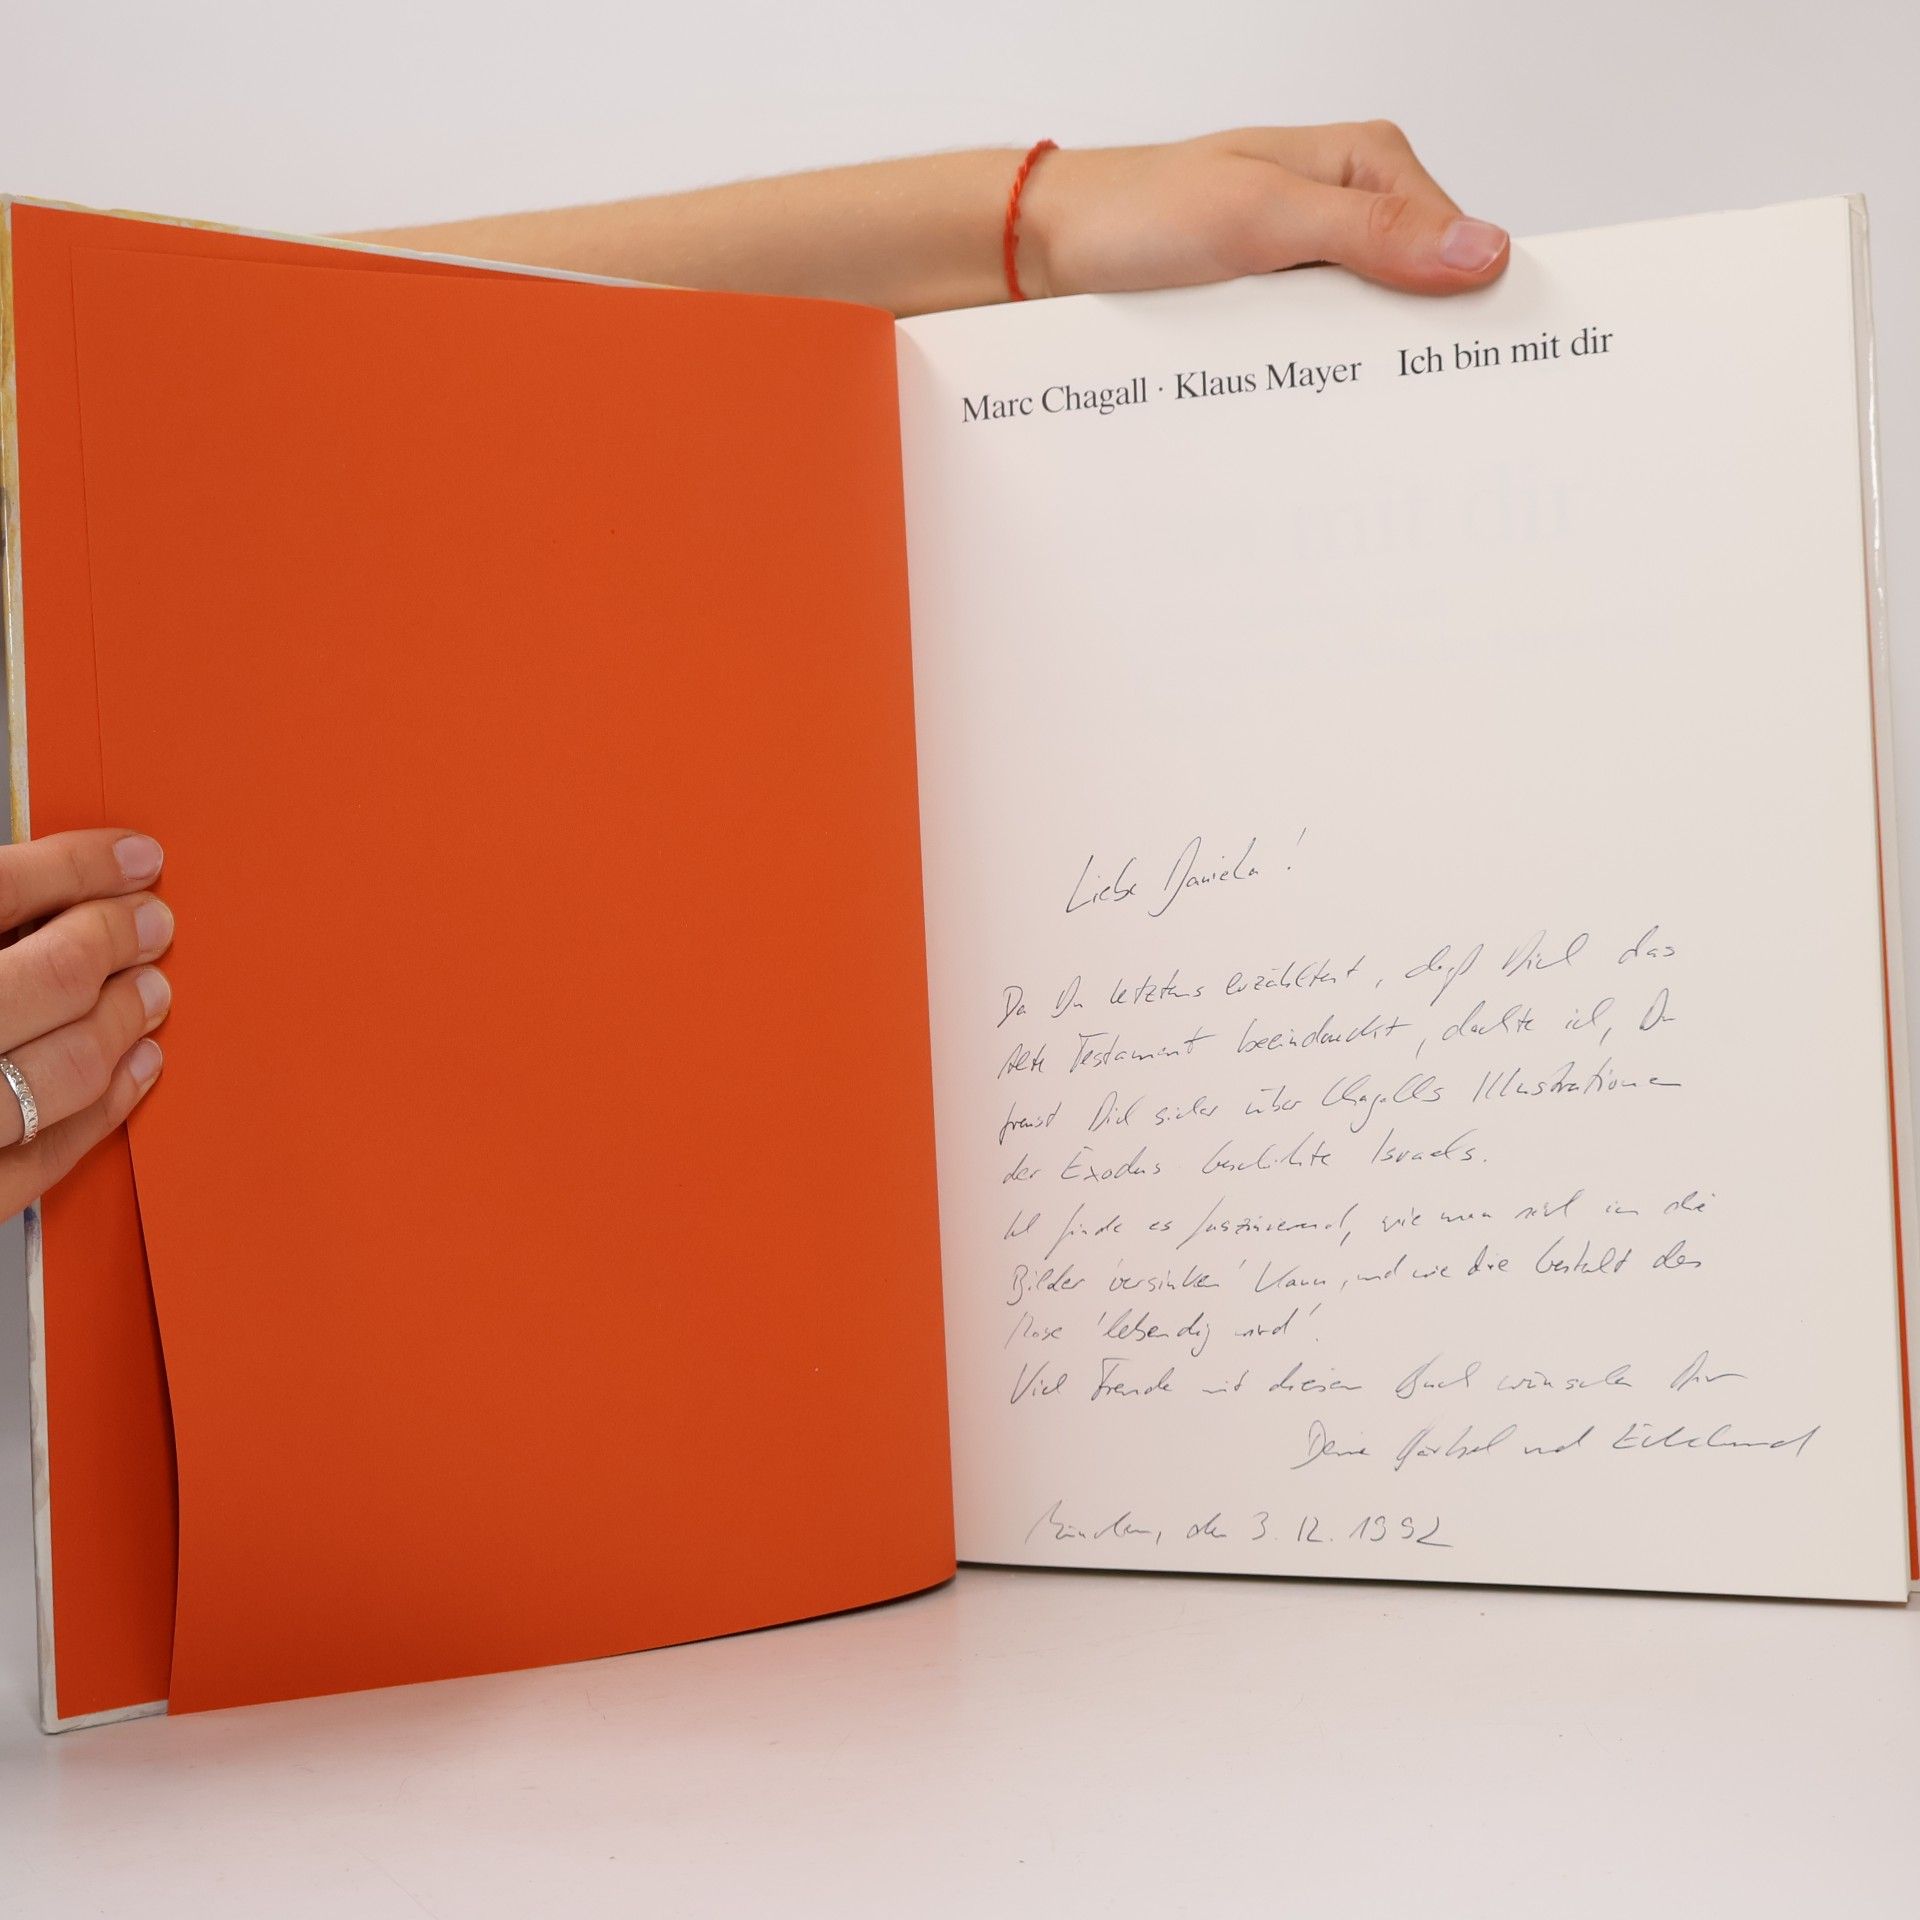 Marc Chagall · Klaus Mayer Ich bin mit dir
Liebe Daniela!
Da Du letztens erzähltest, daß Dich das
Alte Testament beeindruckt, dachte ich, Du
freust Dich sicher über Chagalls Illustrationen
der Exodus Geschichte Israels.
Ich finde es faszinierend, wie man sich in die
Bilder 'versinken' kann, und wie die Gestalt des
Mose 'lebendig wird'.
Viel Freude mit diesem Buch wünschen Dir
Deine und
München, den 3. 12. 1992